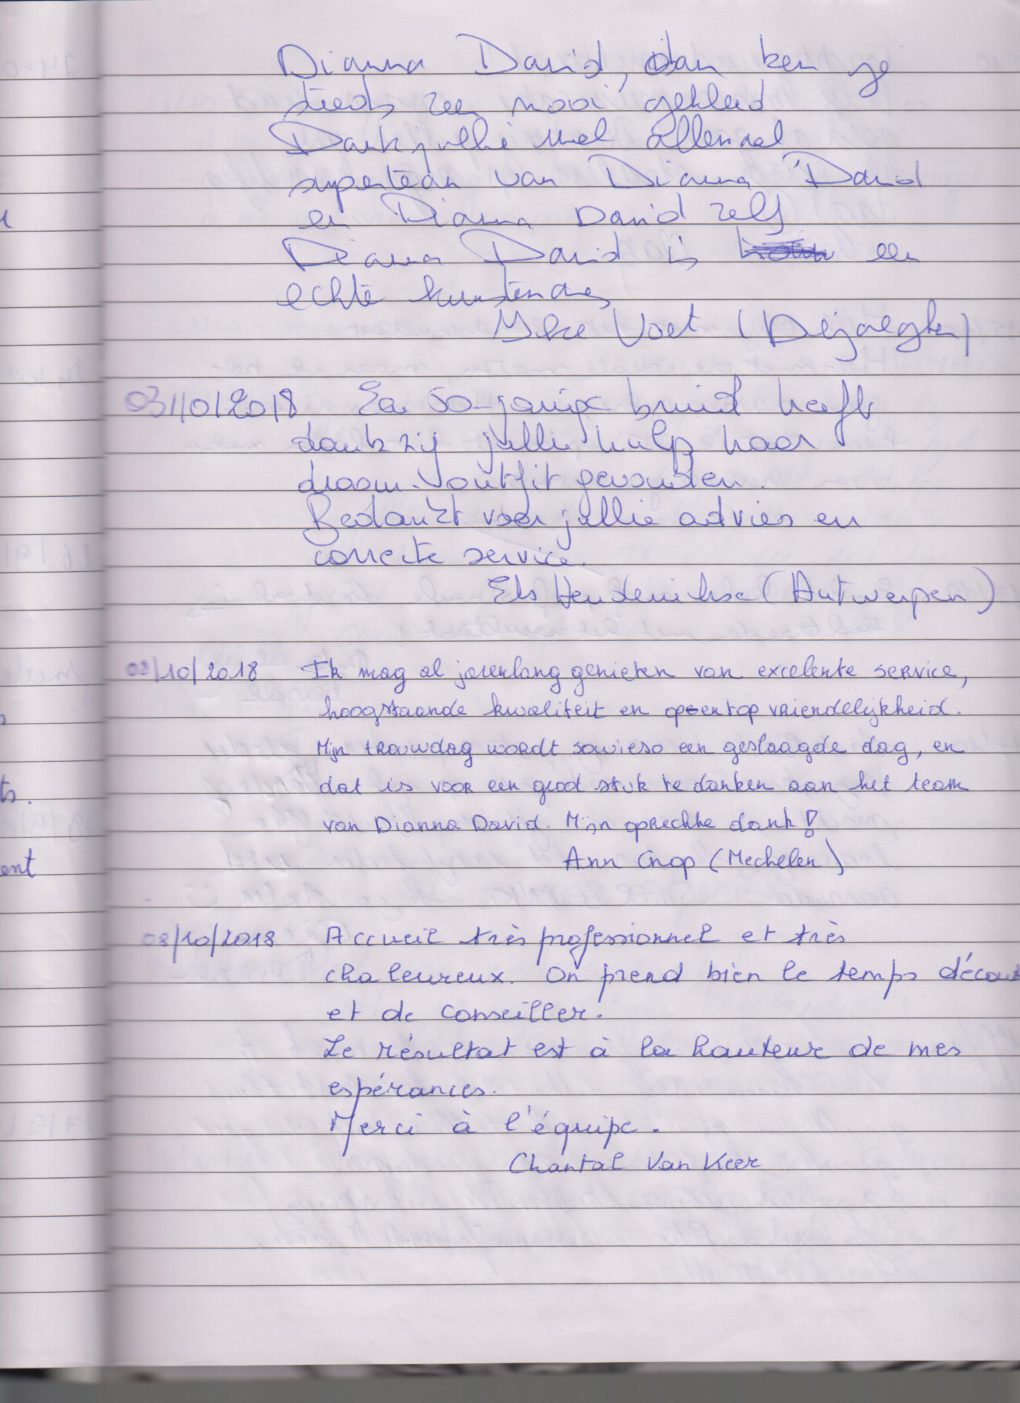 Dianna David, dan ben je
steeds zeer mooi gekleed
Dank jullie wel allemaal
superteam van Dianna David
en Dianna David zelf
Dianna David is een
echte kunstenares
Voet (Dejaeghere)
03/10/2018 Een 50-jarige bruid heeft
dankzij jullie hulp haar
droom-outfit gevonden.
Bedankt voor jullie advies en
correcte service.
Els (Antwerpen)
03/10/2018 Ik mag al jarenlang genieten van excelente service,
hoogstaande kwaliteit en op en top vriendelijkheid.
Mijn trouwdag wordt sowieso een geslaagde dag, en
dat is voor een groot stuk te danken aan het team
van Dianna David. Mijn oprechte dank!
Ann Cnop (Mechelen)
08/10/2018 Accueil très professionnel et très
chaleureux. On prend bien le temps d'écou
et de conseiller.
Le résultat est à la hauteur de mes
espérances.
Merci à l'équipe.
Chantal Van Keer
ts.
ent